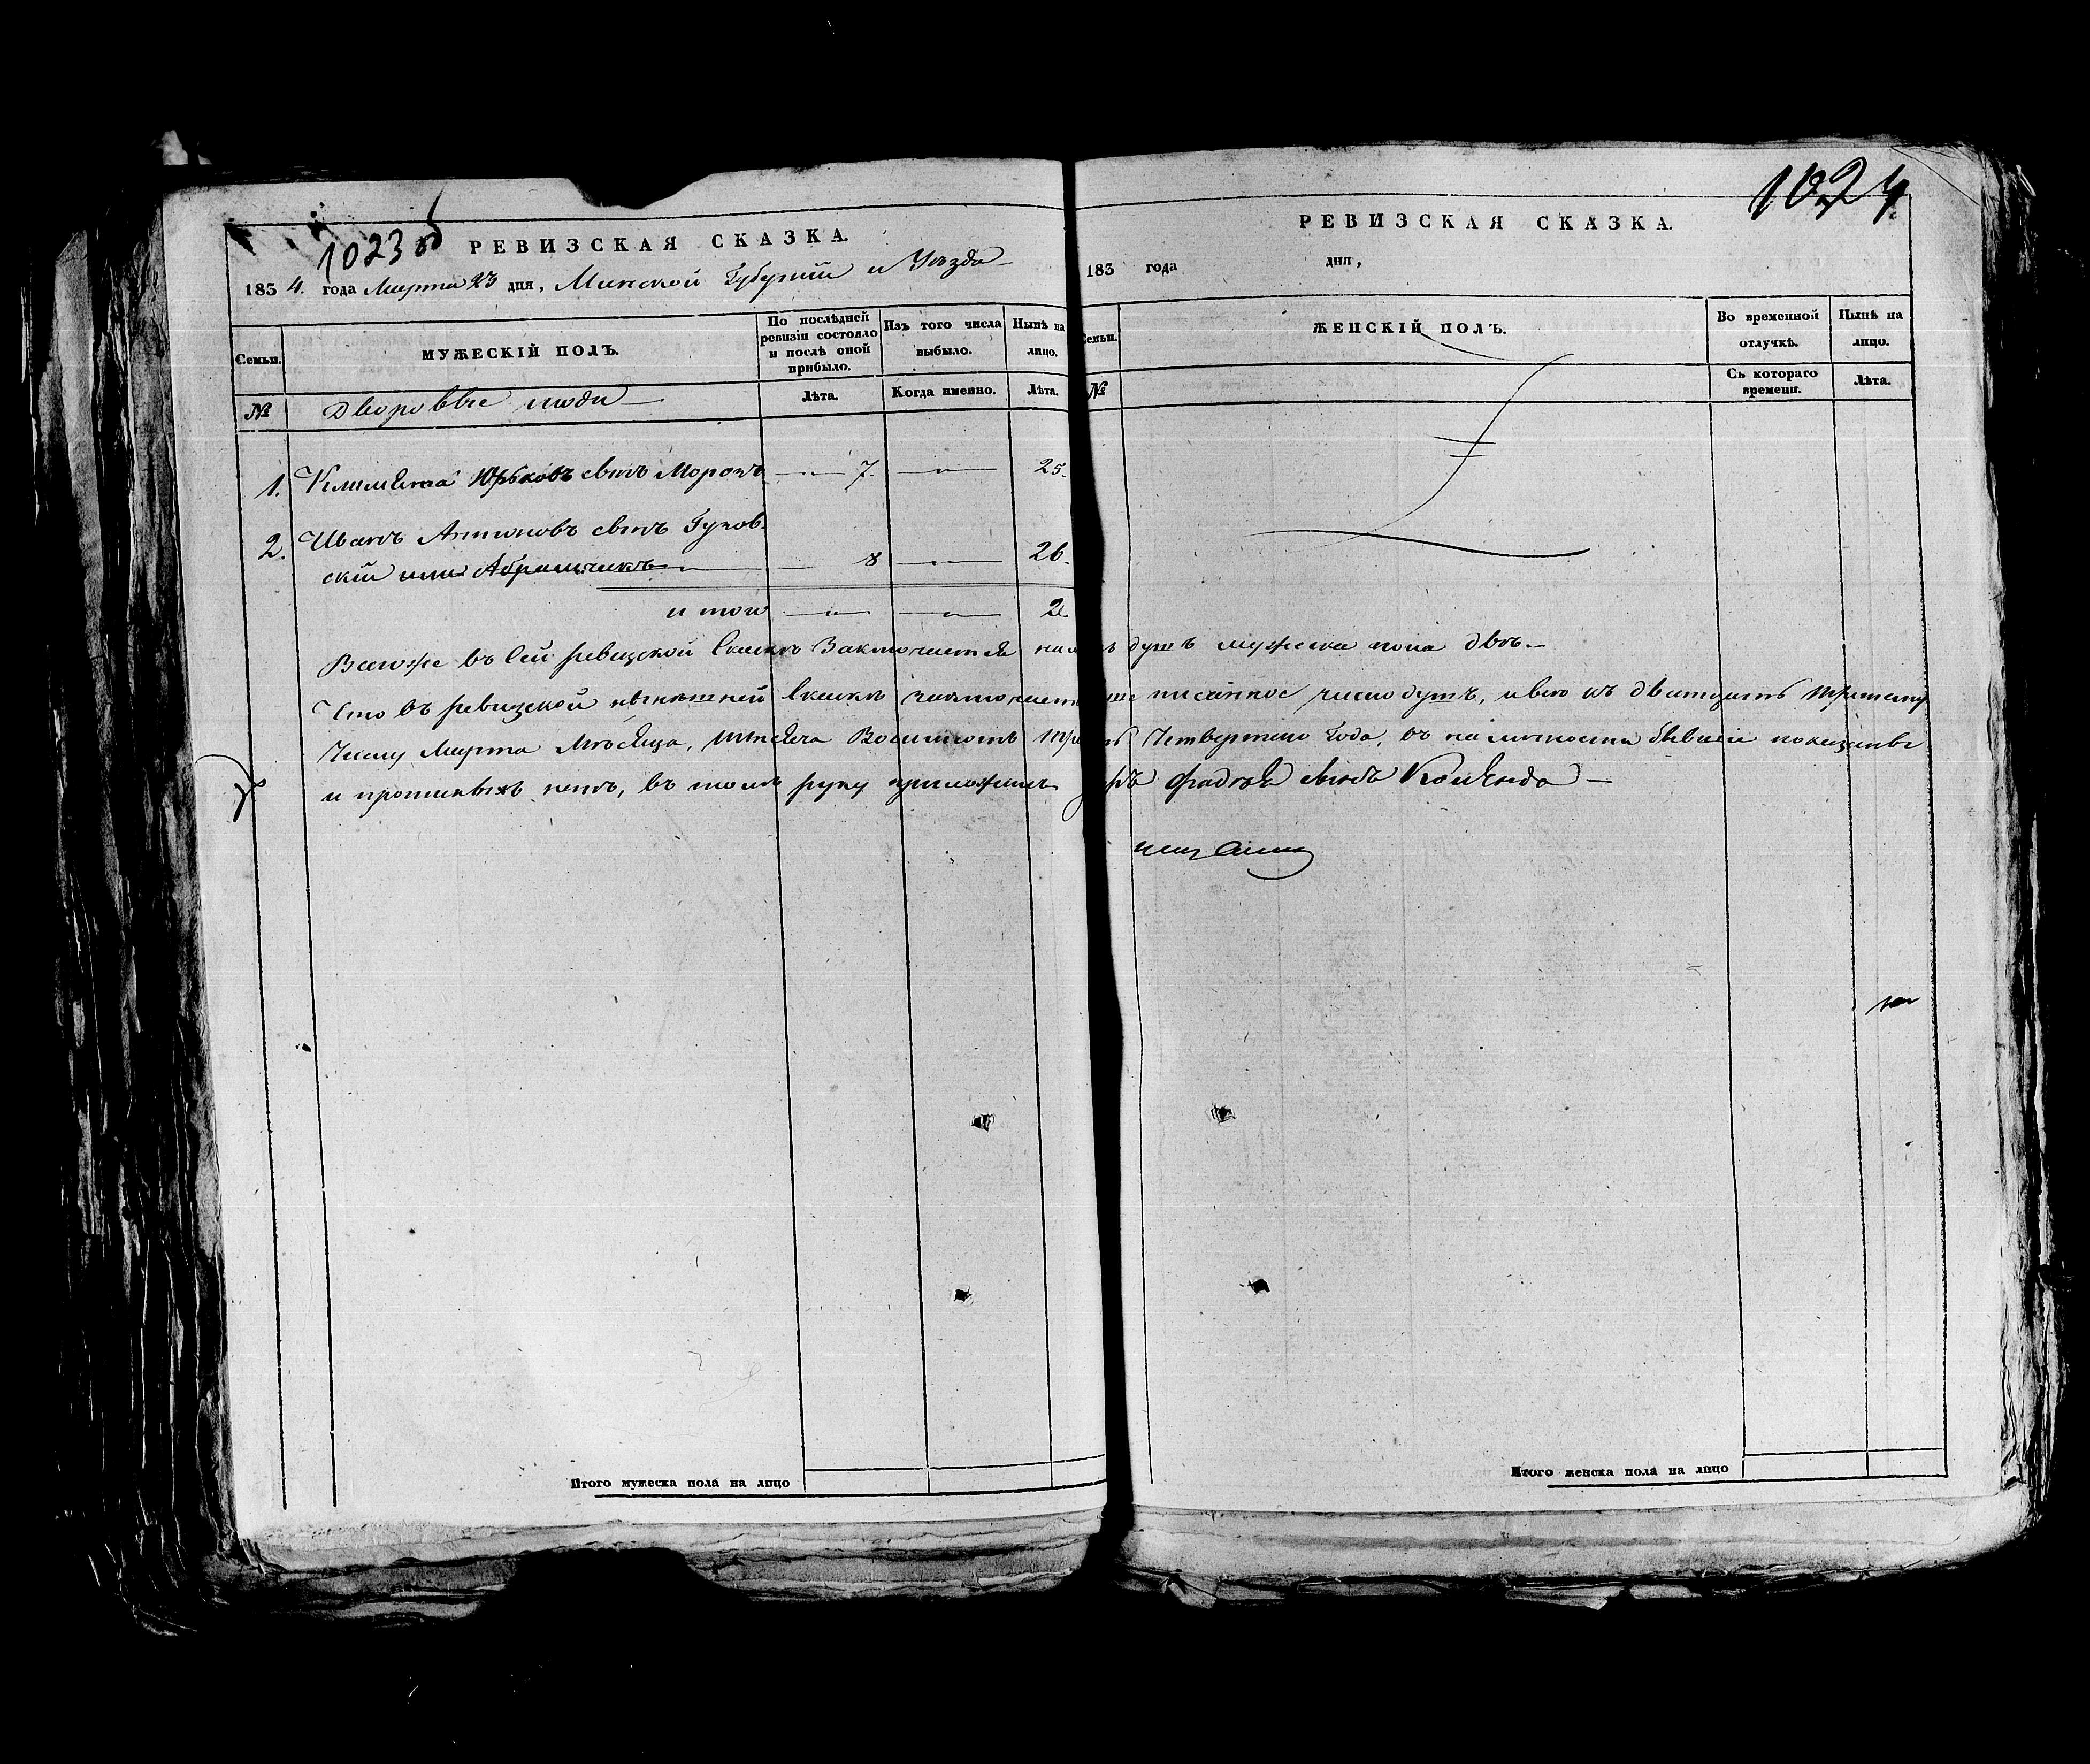 1023 об
РЕВИЗСКАЯ СКАЗКА.
1834. года Марта 23 дня, Минской Губернии и Уезда
Семьи.
МУЖЕСКІЙ ПОЛЪ.
По послѣдней ревизіи состояло и послѣ оной прибыло.
Изъ того числа выбыло.
Нынѣ на лицо.
№
Дворовые люди
Лѣта.
Когда именно.
Лѣта.
1. Климента Юрьковъ сынъ Морозъ 7. 25.
2. Иванъ Антоновъ сынъ Гуков-
скій или Абрамчикъ 8 26.
итого 2
Всегоже въ сей ревизской сказкѣ Заключается на
Что въ ревизской нынѣшней сказкѣ
Числу Марта Мѣсяца, тысяча Восимсотъ
и прописныхъ нетъ, въ томъ руку приложилъ
Итого мужеска пола на лицо
1024
РЕВИЗСКАЯ СКАЗКА.
183 года дня,
Семьи.
ЖЕНСКІЙ ПОЛЪ.
Во временной отлучкѣ.
Нынѣ на лицо.
№
Съ котораго времени.
Лѣта.
душъ мужеска пола двѣ.
писанное число душъ, къ двадцать третьему
Четвертого Года, въ наличности бывшіе показаны
сынъ Коленда
Итого женска пола на лицо